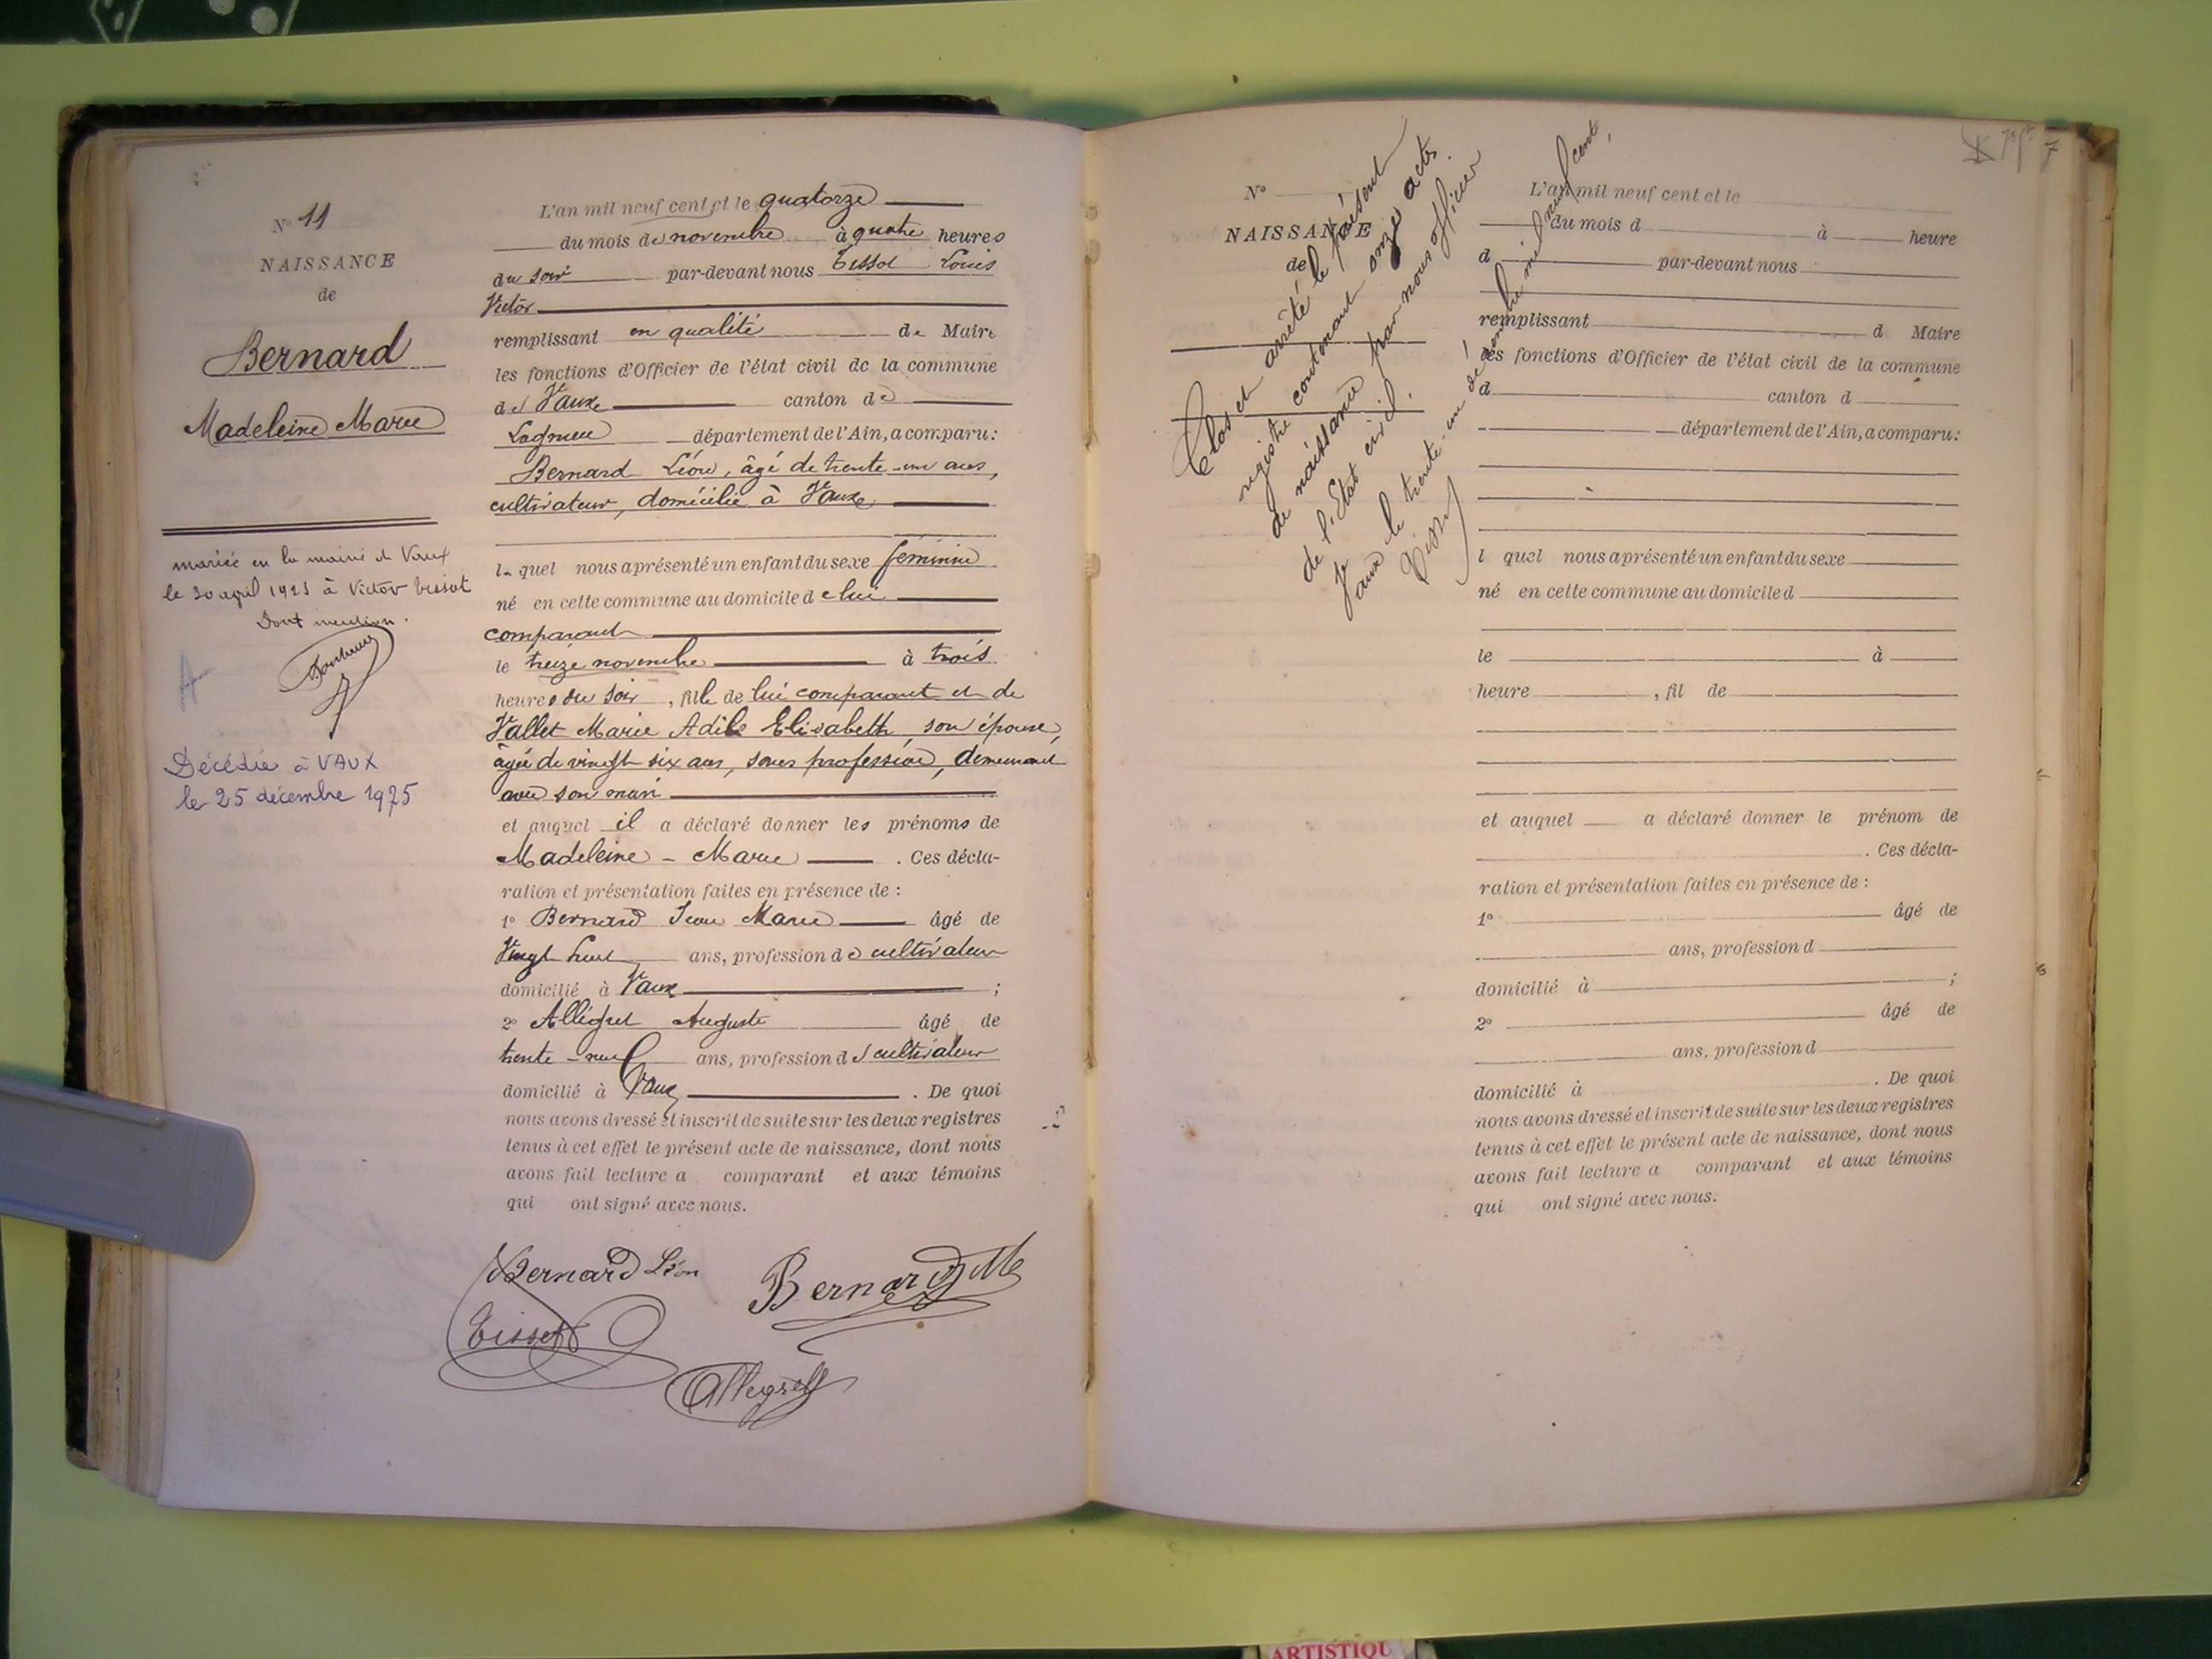 Nº 11
NAISSANCE
de
Bernard
Madeleine Marie
mariée en la mairie de Vaux
le 20 avril 1925 à Victor Tissot
Dont mention.
A
Décédée à VAUX
le 25 décembre 1975
L'an mil neuf cent et le quatorze
du mois de novembre à quatre heures
du soir par-devant nous Tissot Louis
Victor
remplissant en qualité de Maire
les fonctions d'Officier de l'état civil de la commune
de Vaux canton de
Lagnieu département de l'Ain, a comparu:
Bernard Léon, âgé de trente-un ans,
cultivateur, domicilié à Vaux
lequel nous a présenté un enfant du sexe féminin
né en cette commune au domicile de lui
comparant
le treize novembre à trois
heures du soir, fille de lui comparant et de
Vallet Marie Adèle Elisabeth, son épouse,
âgée de vingt six ans, sans profession, demeurant
avec son mari
et auquel il a déclaré donner les prénoms de
Madeleine - Marie . Ces décla-
ration et présentation faites en présence de :
1º Bernard Jean Marie âgé de
Vingt huit ans, profession de cultivateur
domicilié à Vaux ;
2º Allégret Auguste âgé de
trente-neuf ans, profession de cultivateur
domicilié à Vaux . De quoi
nous avons dressé et inscrit de suite sur les deux registres
tenus à cet effet le présent acte de naissance, dont nous
avons fait lecture a comparant et aux témoins
qui ont signé avec nous.
Bernard Léon
Bernard JM
Tissot
Allegret
7
Nº
NAISSANCE
de
Clos et arrêté le présent
registre contenant onze actes
de naissance par nous officier
de l'Etat civil.
Vaux le trente-un décembre mil neuf cent,
L'an mil neuf cent et le
du mois d à heure
d par-devant nous
remplissant d Maire
les fonctions d'Officier de l'état civil de la commune
d canton d
département de l'Ain, a comparu:
l quel nous a présenté un enfant du sexe
né en cette commune au domicile d
le à
heure , fil de
et auquel a déclaré donner le prénom de
. Ces décla-
ration et présentation faites en présence de :
1º âgé de
ans, profession d
domicilié à ;
2º âgé de
ans, profession d
domicilié à . De quoi
nous avons dressé et inscrit de suite sur les deux registres
tenus à cet effet le présent acte de naissance, dont nous
avons fait lecture a comparant et aux témoins
qui ont signé avec nous.
ARTISTIQU